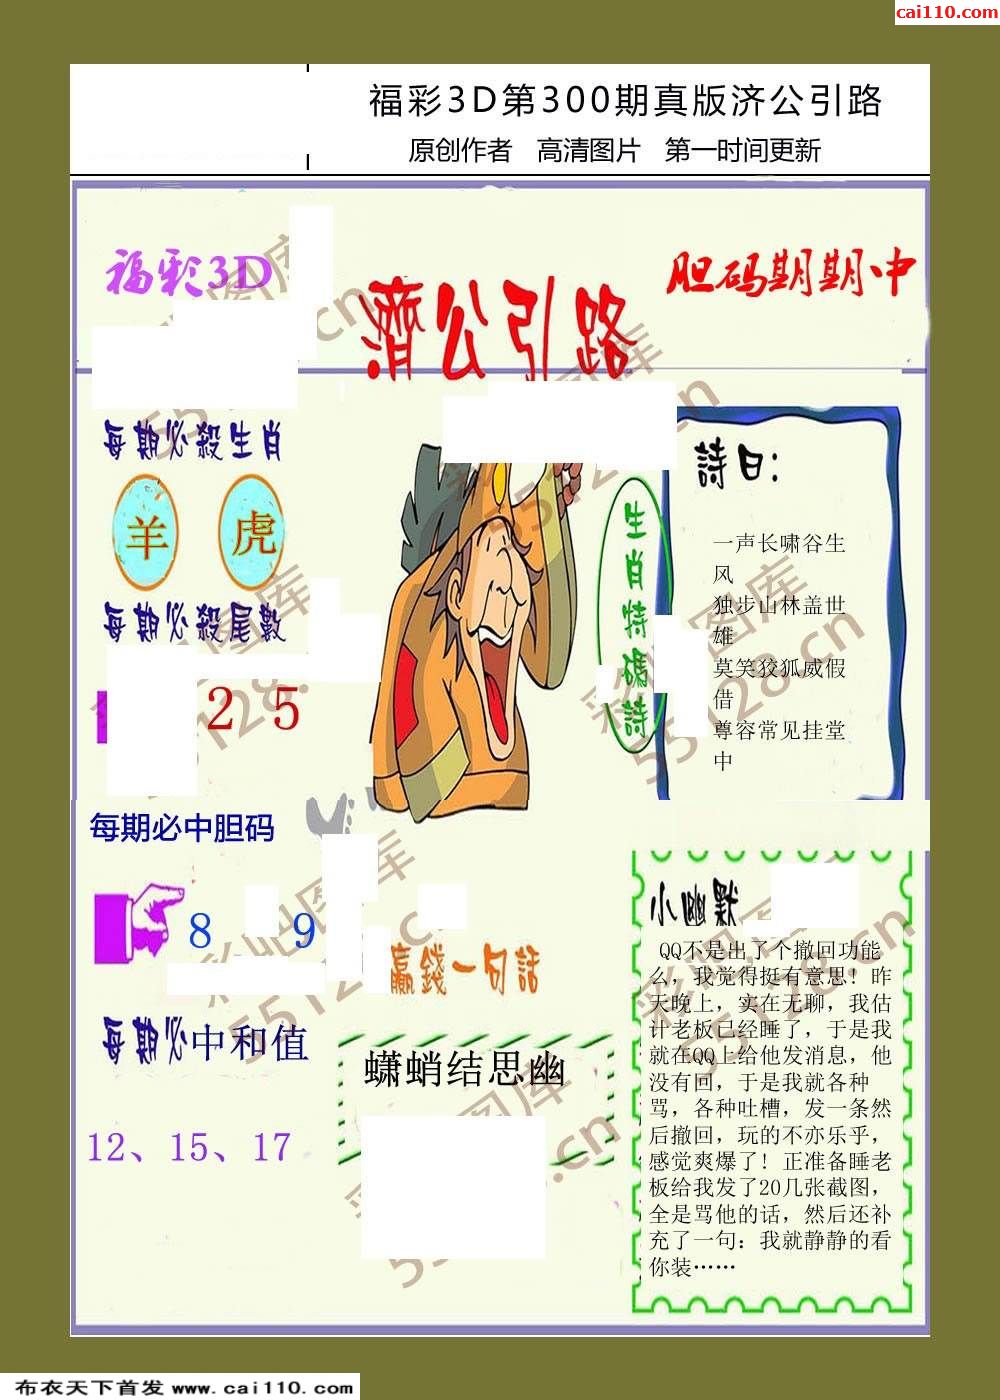 cai110.com
福彩3D第300期真版济公引路
原创作者 高清图片 第一时间更新
福彩3D
濟公引路
胆码期期中
每期必殺生肖
羊 虎
每期必殺尾數
2 5
每期必中胆码
8 9
每期必中和值
12、15、17
生肖特碼詩
詩曰：
一声长啸谷生
风
独步山林盖世
雄
莫笑狡狐威假
借
尊容常见挂堂
中
贏錢一句話
蟏蛸结思幽
小幽默
QQ不是出了个撤回功能
么，我觉得挺有意思！昨
天晚上，实在无聊，我估
计老板已经睡了，于是我
就在QQ上给他发消息，他
没有回，于是我就各种
骂，各种吐槽，发一条然
后撤回，玩的不亦乐乎，
感觉爽爆了！正准备睡老
板给我发了20几张截图，
全是骂他的话，然后还补
充了一句：我就静静的看
你装……
彩吧图库
55128.cn
布衣天下首发 www.cai110.com